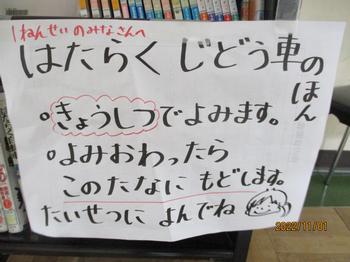 1ねんせいのみなさんへ
はたらく じどう車の
ほん
。きょうしつでよみます。
。よみおわったら
このたなに もどします。
たいせつに よんでね
2022/11/01